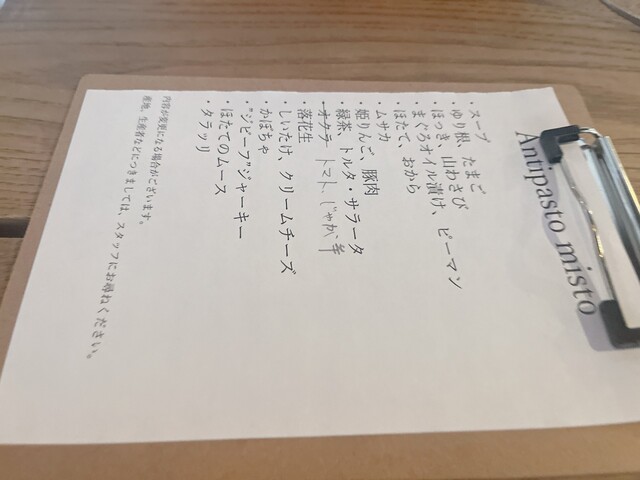 Antipasto misto
・スープ
・ゆり根、たまご
・ほっき、山わさび
・まぐろオイル漬け、ピーマン
・ほたて、おから
・ムサカ
・姫りんご、豚肉
・緑茶 トルタ・サラータ
・オクラ トマト じゃが芋
・落花生
・しいたけ、クリームチーズ
・かぼちゃ
・”ジビーフ”ジャーキー
・ほたてのムース
・タラッリ
内容が変更になる場合がございます。
産地、生産者などにつきましては、スタッフにお尋ねください。